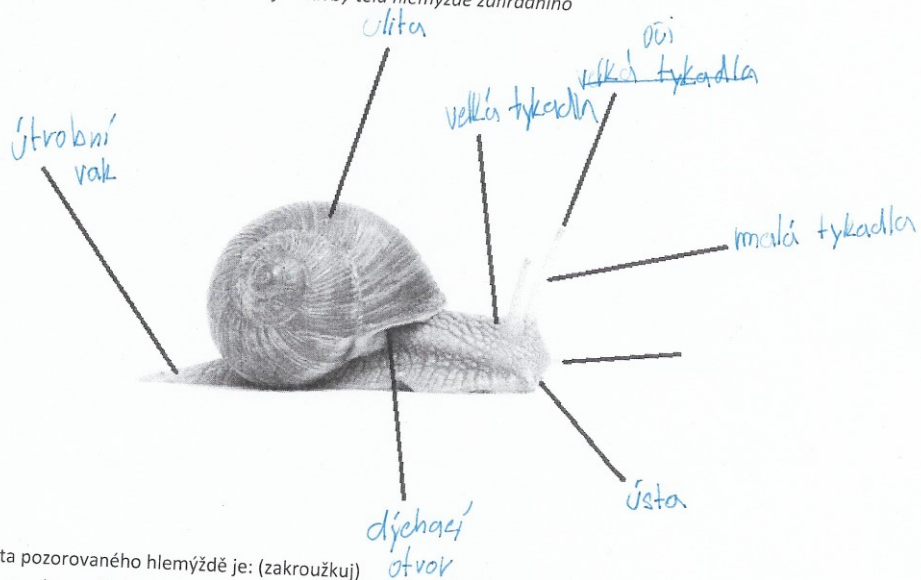 těla hlemýždě zahradního
ulita
oči
velká tykadla
velká tykadla
útrobní
vak
malá tykadla
ústa
dýchací
otvor
ta pozorovaného hlemýždě je: (zakroužkuj)